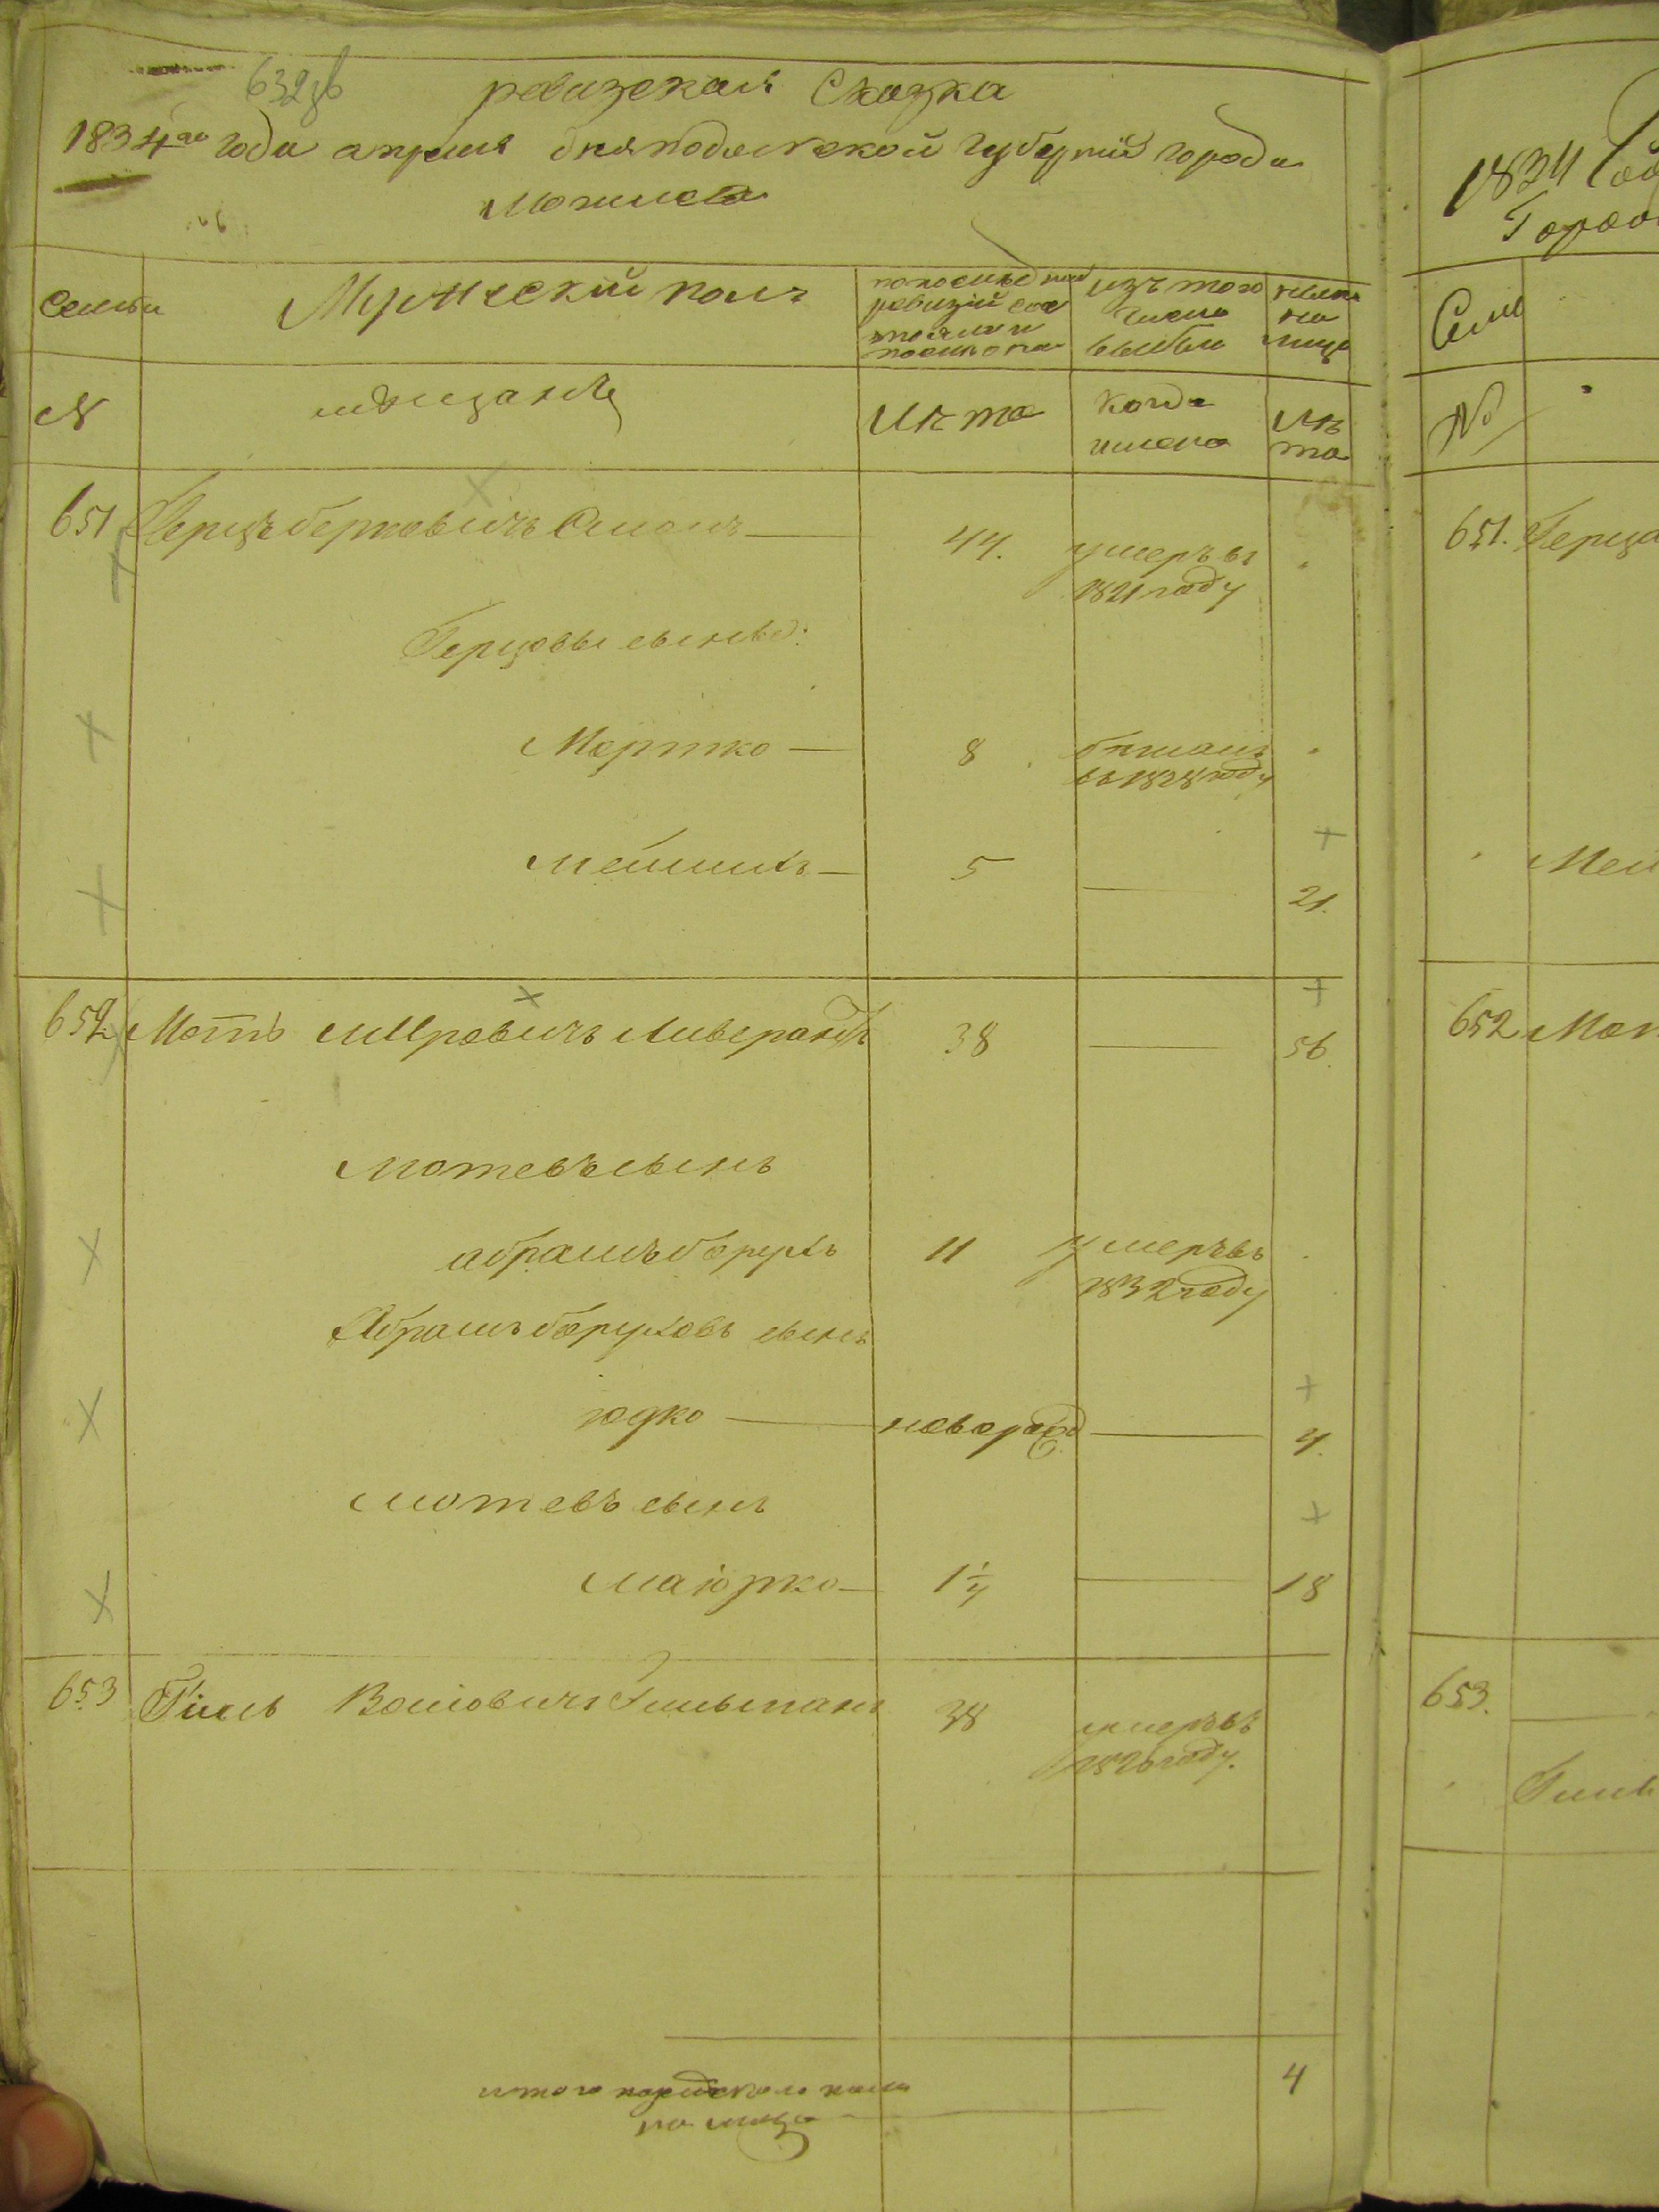 632об
ревизская Сказка
1834го года апреля дня подольской губернии города
Могилева
Семьи
Мужеский полъ
по последней ревизии состояло и после оной
изъ того числа выбыло
ныне на лицо
№
мещане
Лета
когда именно
Лета
651 Герцъ берковичъ 44. умеръ в
1821 году
Герцовы сыновья:
Мортко 8 въ 1828 году
5 21.
652 Моть Ливерантъ 38 56.
мотевъ сынъ
абрамъ борухъ 11 умеръ въ
1832 году
Абрамъ боруховъ сынъ
юдко новорожд. 4.
мотевъ сынъ
маіорко 1 1/4 18
653 Гиль Гильманъ 38 умеръ въ
1826 году.
итого мужеского пола 4
на лицо
1834 Год
Город
Семи
№
651. Герцо
Мей
652 Мот
653.
Гиль